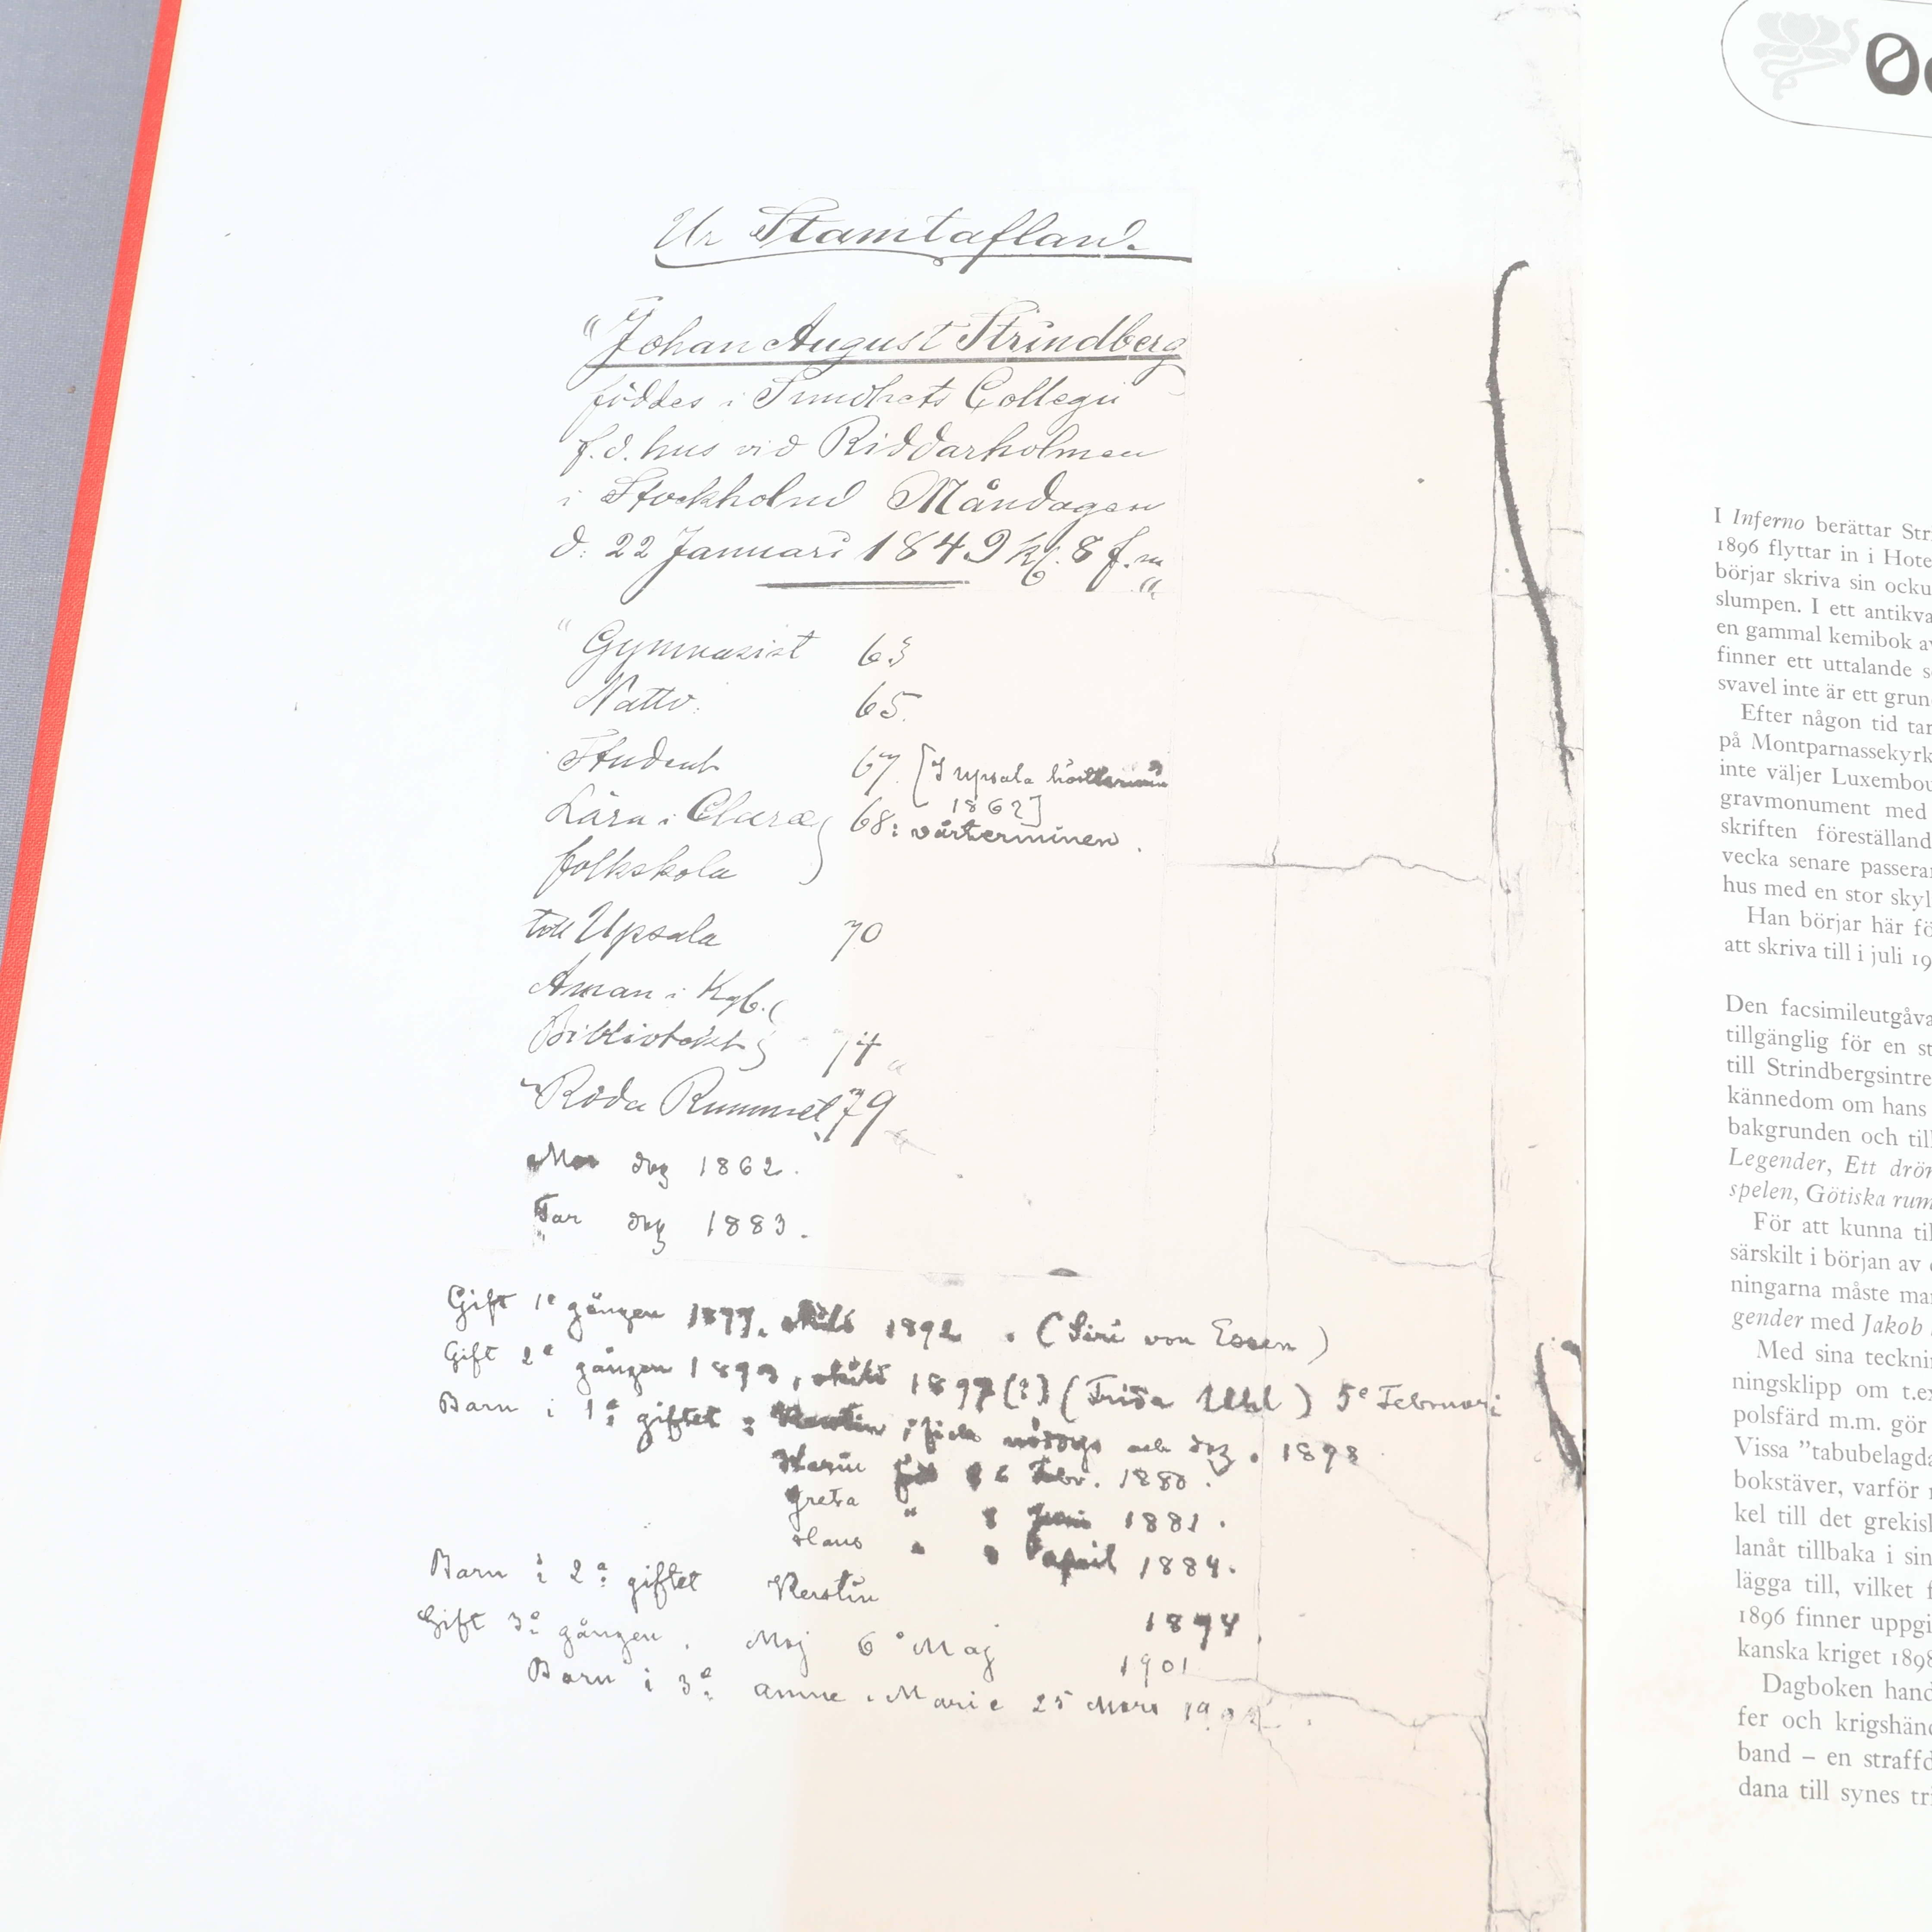 Ur Stamtaflan.
"Johan August Strindberg
föddes i Sundhets Collegii
f.d. hus vid Riddarholmen
i Stockholm Måndagen
d: 22 Januari 1849 kl. 8 f.m
"
"Gymnasist 63
Nattv. 65.
Student 67. [I Upsala höstterminen
1867]
Lära i Clara 68: vårterminen.
folkskola
till Upsala 70
Aman i Kgl.
Biblioteket 74
"Röda Rummet" 79
Mor dog 1862.
Far dog 1883.
Gift 1e gången 1877, skild 1892. (Siri von Essen)
Gift 2e gången 1893, skild 1897(?) (Frida Uhl) 5e Februari
Barn i 1a giftet: Kerstin; och dog. 1893
Karin född 26 Febr. 1880.
Greta " 8 Juni 1881.
Hans " 3 april 1884.
Barn i 2a giftet Kerstin 1894.
Gift 3e gången. Maj 6e Maj 1901
Barn i 3e Anne-Marie 25 Mars 1902.
I Inferno berättar
1896 flyttar in i
börjar skriva sin
slumpen. I ett
en gammal kemibok
finner ett uttalande
svavel inte är ett
Efter någon tid
på
inte väljer
gravmonument med
skriften
vecka senare
hus med en stor
Han börjar här
att skriva till i juli
Den
tillgänglig för en
till
kännedom om hans
bakgrunden och
Legender, Ett
spelen, Götiska
För att kunna
särskilt i början av
ningarna måste
gender med Jakob
Med sina
ningsklipp om
polsfärd m.m. gör
Vissa
bokstäver, varför
kel till det
lanåt tillbaka i
lägga till, vilket
1896 finner
kanska kriget
Dagboken
fer och
band – en
dana till synes